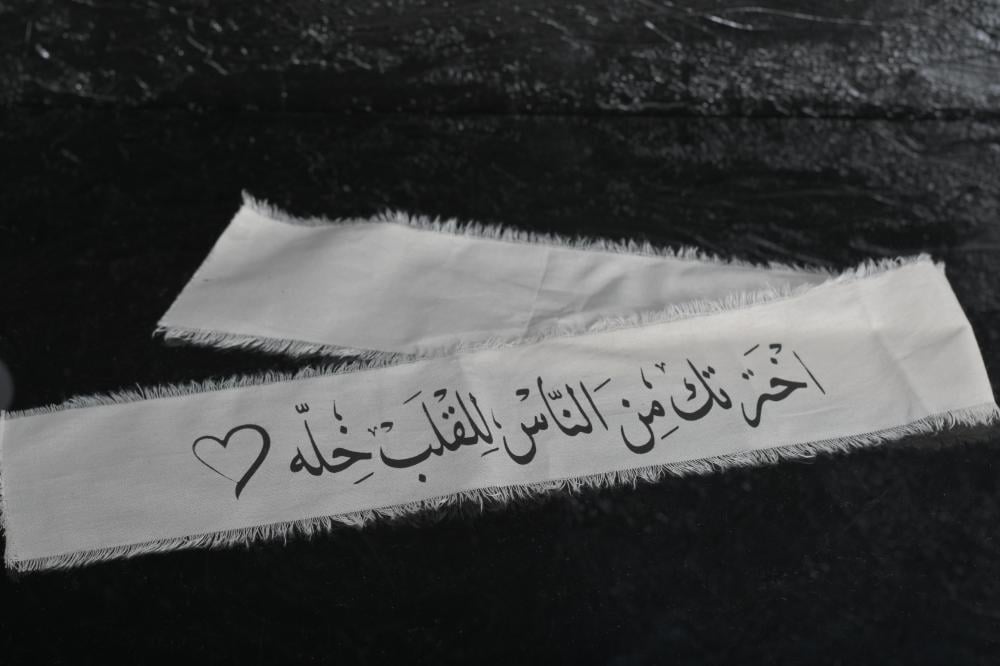 اخترتك مِن النَّاس لِلقلب خِلّه ♡